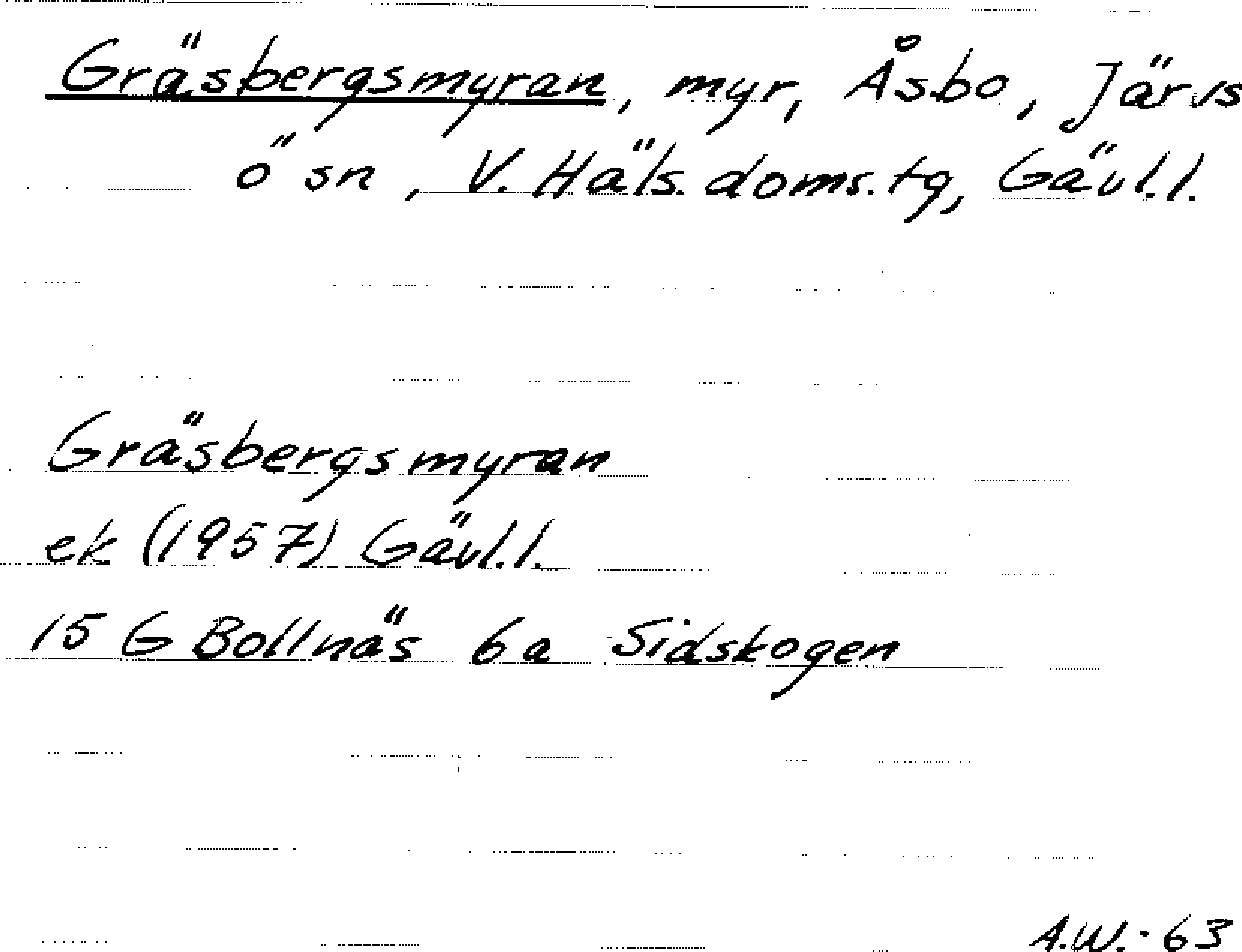 Gräsbergsmyran, myr, Åsbo, Järvs
ö sn, V. Häls. doms. tg, Gävl.l.
Gräsbergsmyran
ek (1957) Gävl.l.
15 G Bollnäs 6a Sidskogen
A.W.-63